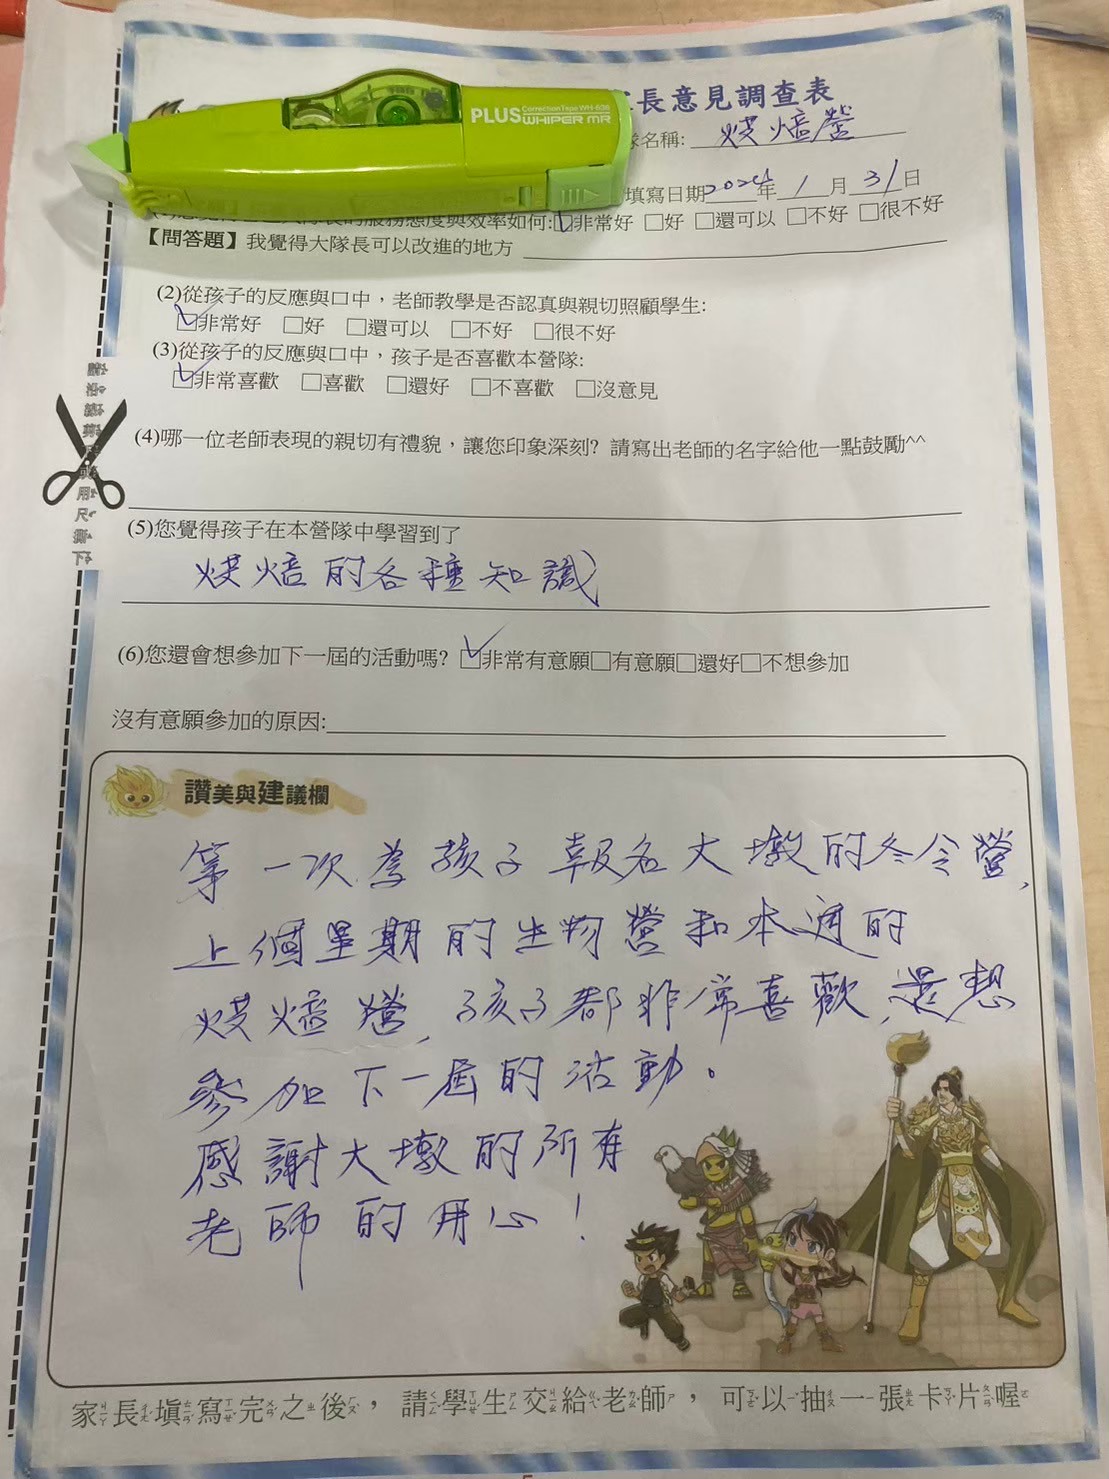 長意見調查表
PLUS Correction Tape WH-636
WHIPER MR
隊名稱: 烘焙營
填寫日期2024年1月31日
的服務態度與效率如何:☑非常好 □好 □還可以 □不好 □很不好
【問答題】我覺得大隊長可以改進的地方
(2)從孩子的反應與口中，老師教學是否認真與親切照顧學生:
☑非常好 □好 □還可以 □不好 □很不好
(3)從孩子的反應與口中，孩子是否喜歡本營隊:
☑非常喜歡 □喜歡 □還好 □不喜歡 □沒意見
(4)哪一位老師表現的親切有禮貌，讓您印象深刻? 請寫出老師的名字給他一點鼓勵^^
(5)您覺得孩子在本營隊中學習到了
烘焙的各種知識
(6)您還會想參加下一屆的活動嗎? ☑非常有意願□有意願□還好□不想參加
沒有意願參加的原因:
讚美與建議欄
第一次為孩子報名大墩的冬令營,
上個星期的生物營和本週的
烘焙營, 孩子都非常喜歡, 還想
參加下一屆的活動。
感謝大墩的所有
老師的用心!
家長填寫完之後，請學生交給老師，可以抽一張卡片喔